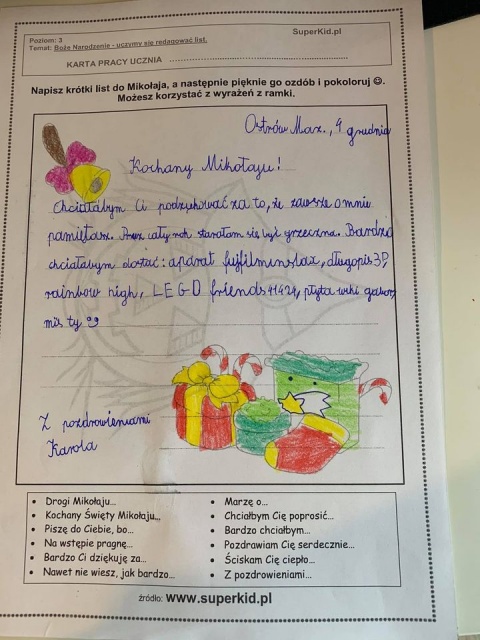 Poziom: 3
SuperKid.pl
Temat: Boże Narodzenie - uczymy się redagować list.
KARTA PRACY UCZNIA
Napisz krótki list do Mikołaja, a następnie pięknie go ozdób i pokoloruj ☺.
Możesz korzystać z wyrażeń z ramki.
Ostrów Maz., 4 grudnia
Kochany Mikołaju!
Chciałabym Ci podziękować za to, że zawsze o mnie
pamiętasz. Przez cały rok starałam się być grzeczna. Bardzo
chciałabym dostać: aparat fujifilm instax, długopis 3D,
rainbow high, LEGO friends 41424, płyta wiki gabor,
miś ty
Z pozdrowieniami
Karola
• Drogi Mikołaju...
• Kochany Święty Mikołaju...
• Piszę do Ciebie, bo...
• Na wstępie pragnę...
• Bardzo Ci dziękuję za...
• Nawet nie wiesz, jak bardzo...
• Marzę o...
• Chciałbym Cię poprosić...
• Bardzo chciałbym...
• Pozdrawiam Cię serdecznie...
• Ściskam Cię ciepło...
• Z pozdrowieniami...
źródło: www.superkid.pl